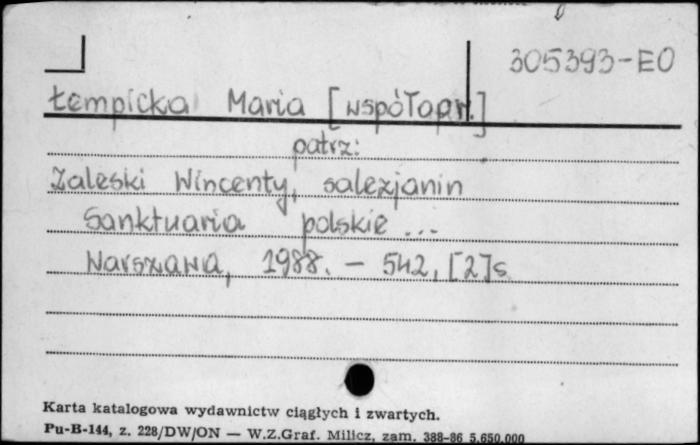 305393-EO
Łempicka Maria [współopr.]
patrz:
Zaleski Wincenty, salezjanin
Sanktuaria polskie ...
Warszawa, 1988. — 542, [2]s
Karta katalogowa wydawnictw ciągłych i zwartych.
Pu-B-144, z. 228/DW/ON — W.Z.Graf. Milicz, zam. 388-86 5.650.000